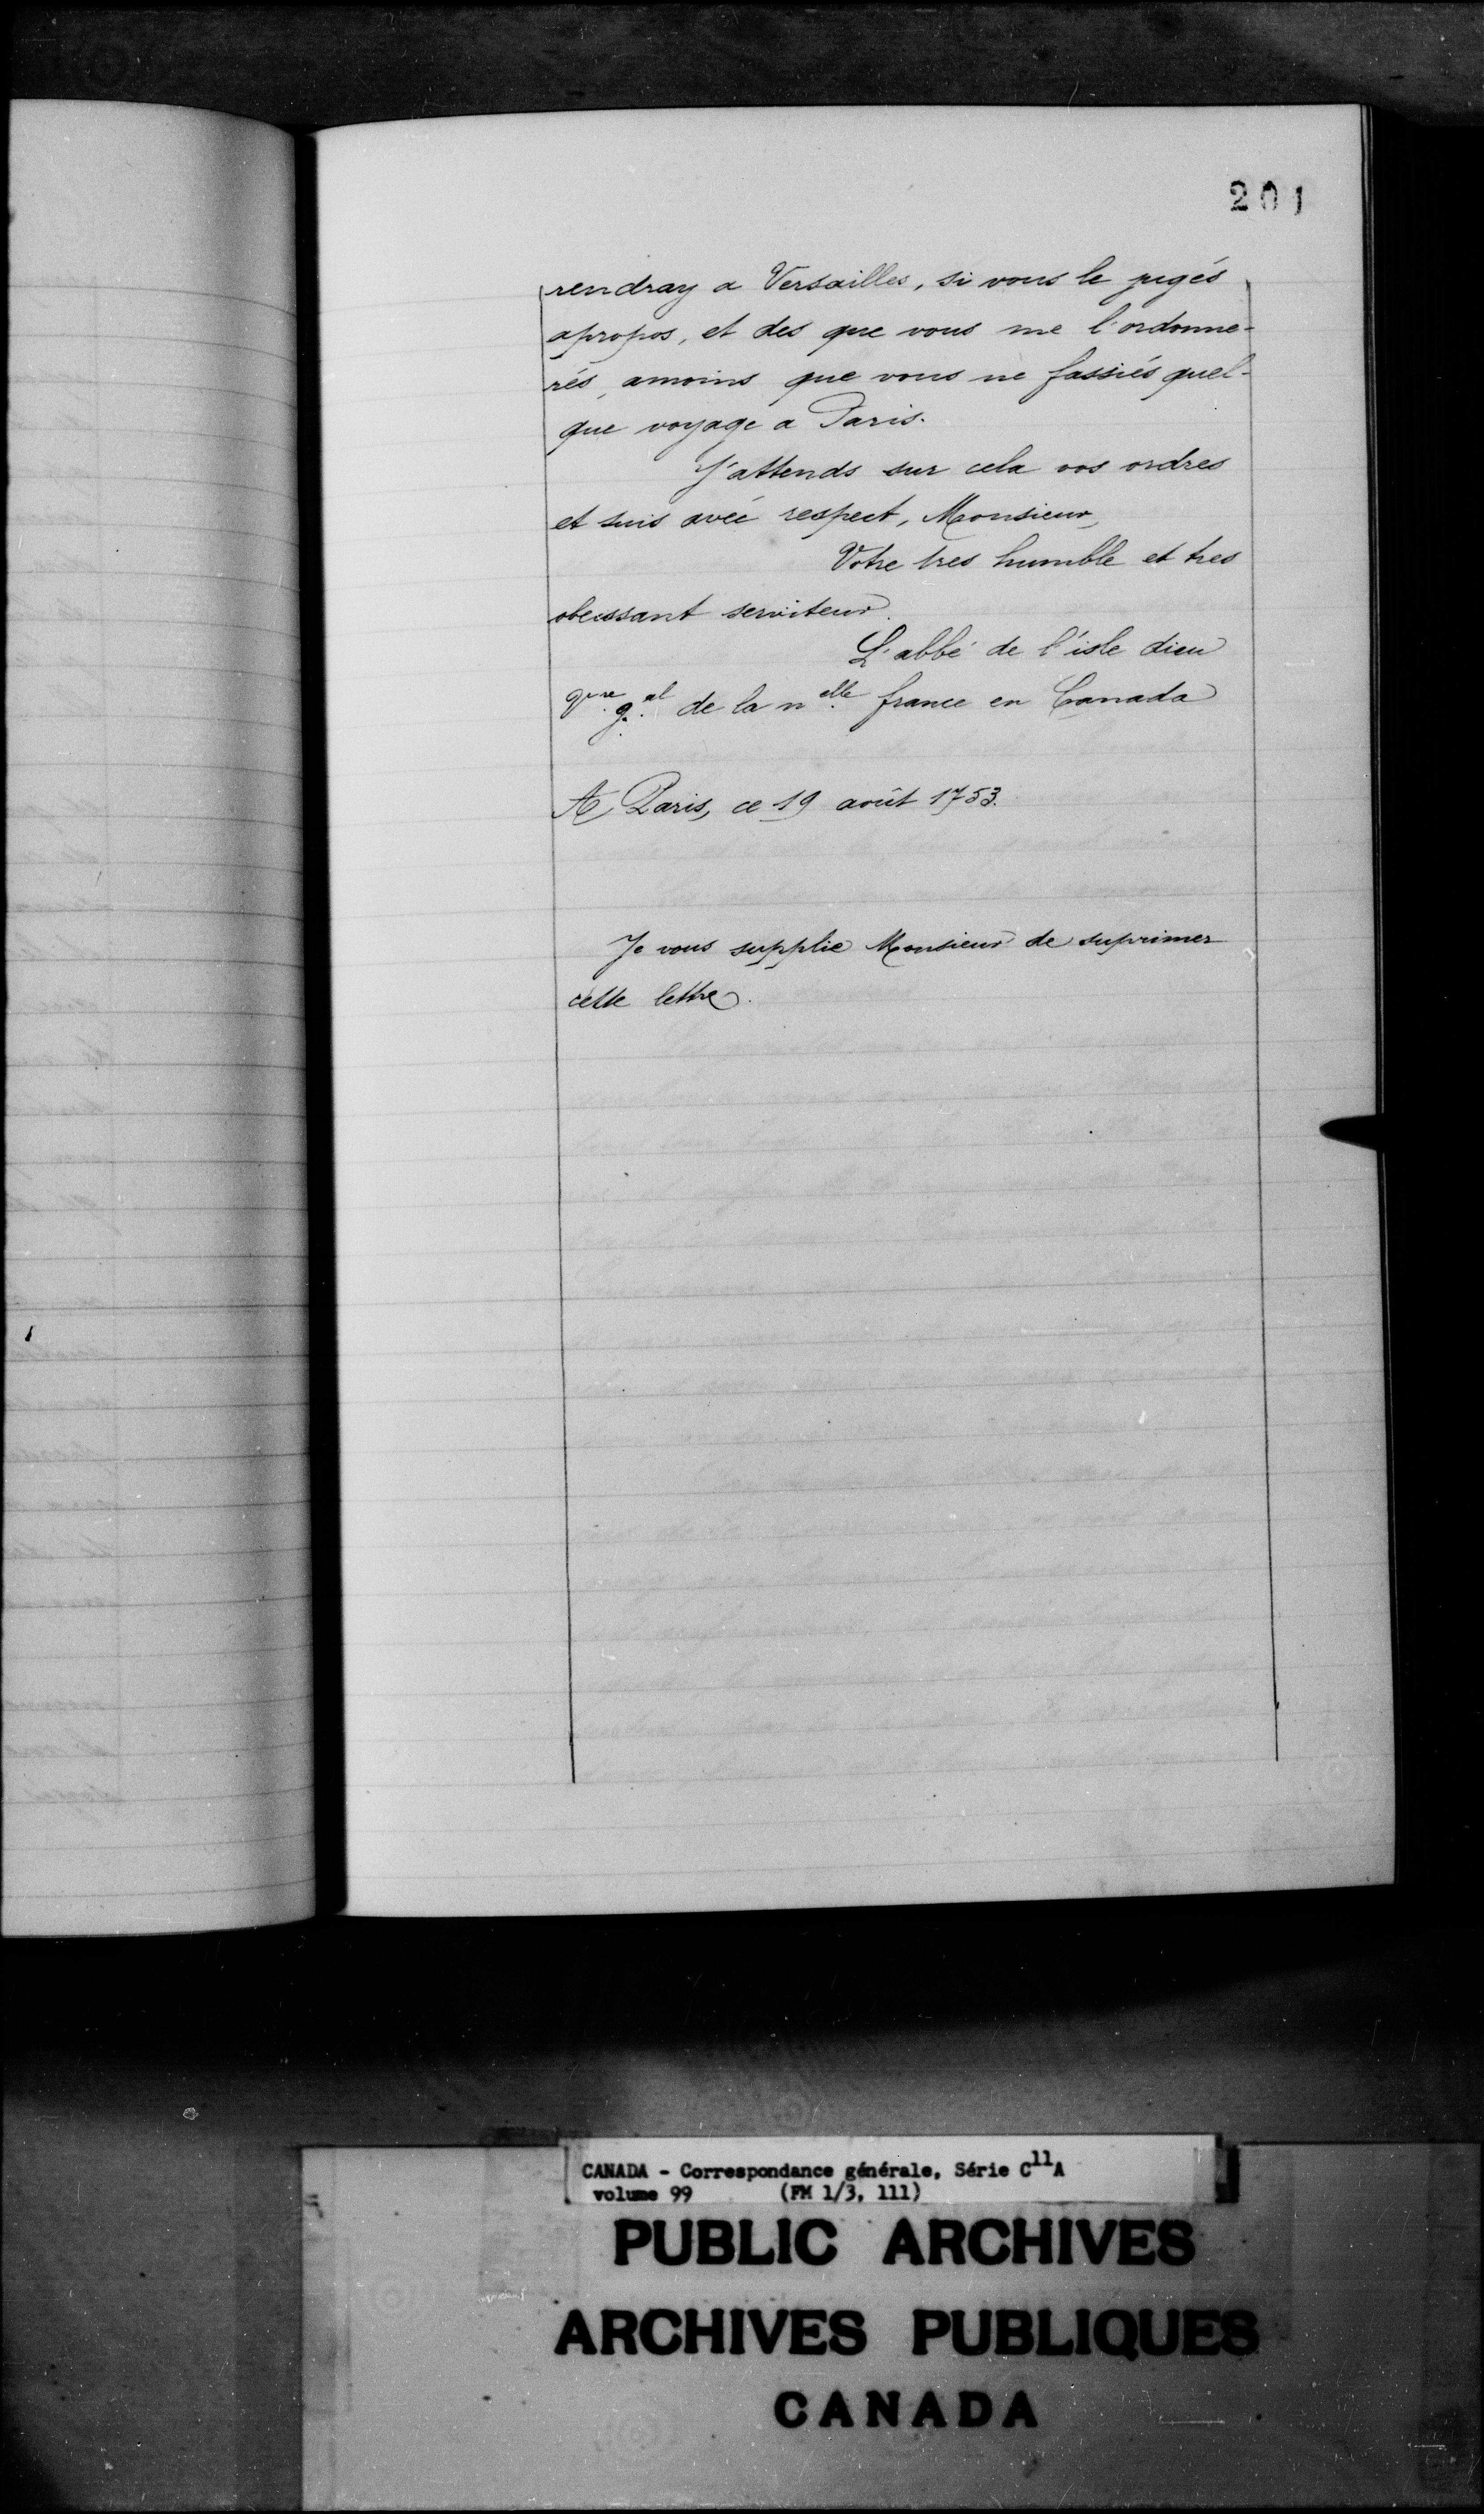 201
rendray a Versailles, si vous le jugés
apropos, et des que vous me l'ordonne-
rés, amoins que vous ne fassiés quel-
que voyage a Paris.
J'attends sur cela vos ordres
et suis avéc respect, Monsieur,
Votre tres humble et tres
obeissant serviteur.
L'abbé de l'isle dieu
g.al de la n.elle france en Canada
A Paris, ce 19 août 1753.
Je vous supplie Monsieur de suprimer
cette lettre.
CANADA - Correspondance générale, Série C11A
volume 99 (FM 1/3, 111)
PUBLIC ARCHIVES
ARCHIVES PUBLIQUES
CANADA